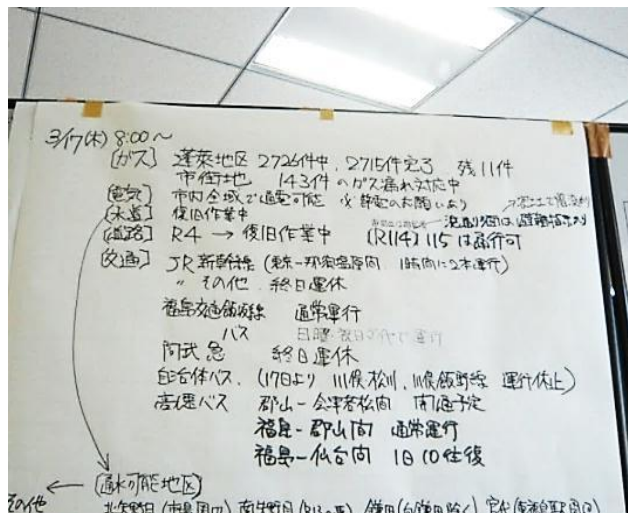 3/17(木) 8:00〜
[ガス] 蓬莱地区 2726件中、2715件完了 残11件
市街地 143件のガス漏れ対応中
[電気] 市内全域で通電可能 ※節電のお願いあり
[水道] 復旧作業中
[道路] R4 → 復旧作業中 (R114) 115は通行可
[交通] JR新幹線 (東京-那須塩原間 1時間に2本運行)
〃 その他 終日運休
福島交通飯坂線 通常運行
バス 日曜・祝日ダイヤで運行
阿武急 終日運休
自治体バス. (17日より 川俣・松川, 川俣・飯野線 運行休止)
高速バス 郡山-会津若松間 開通予定
福島-郡山間 通常運行
福島-仙台間 1日10往復
[通水可能地区]
その他